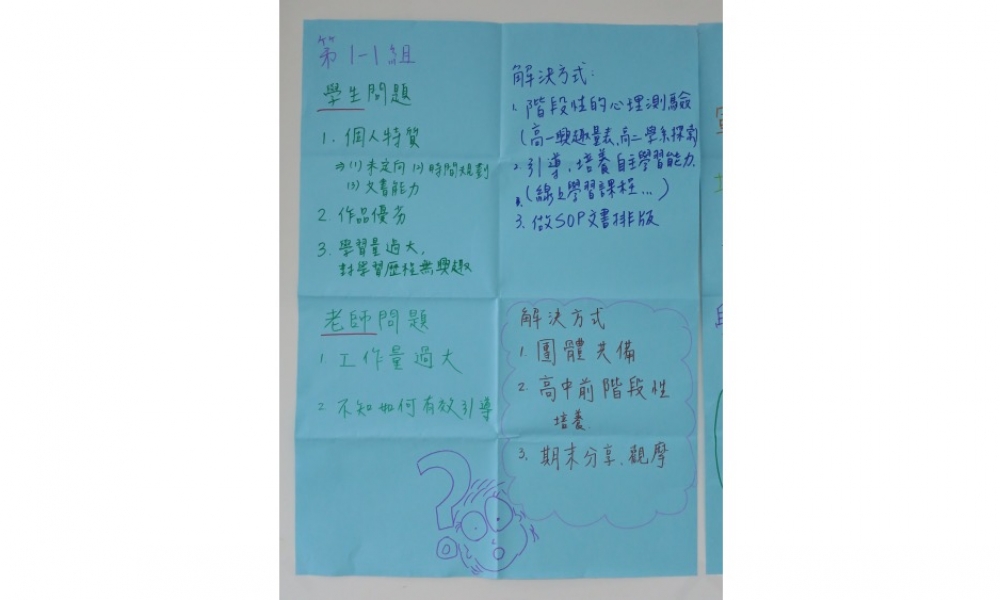 第1-1組
學生問題
1. 個人特質
⇒(1)未定向 (2)時間規劃
(3)文書能力
2. 作品優劣
3. 學習量過大,
對學習歷程無興趣
解決方式:
1. 階段性的心理測驗
(高一興趣量表、高二學系探索
2. 引導、培養自主學習能力.
(線上學習課程...)
3. 做SOP文書排版
老師問題
1. 工作量過大
2. 不知如何有效引導
解決方式
1. 團體共備
2. 高中前階段性
培養.
3. 期末分享、觀摩
?